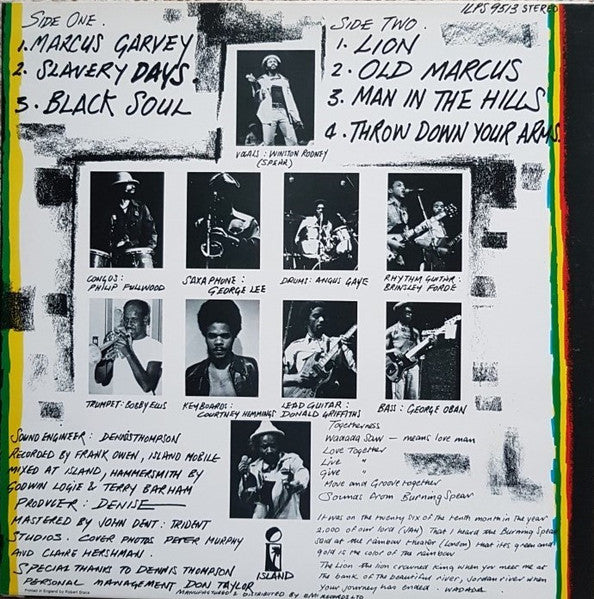 ILPS 9513 STEREO
SIDE ONE.
1. MARCUS GARVEY
2. SLAVERY DAYS.
3. BLACK SOUL
SIDE TWO.
1. LION
2. OLD MARCUS
3. MAN IN THE HILLS
4. THROW DOWN YOUR ARMS.
VOCALS: WINSTON RODNEY
(SPEAR)
CONGOS:
PHILIP FULLWOOD
SAXAPHONE:
GEORGE LEE
DRUMS: ANGUS GAYE
RHYTHM GUITAR:
BRINSLEY FORDE
TRUMPET: BOBBY ELLIS
KEYBOARDS:
COURTNEY HEMMINGS
LEAD GUITAR:
DONALD GRIFFITHS
BASS: GEORGE OBAN
SOUND ENGINEER: DENNIS THOMPSON
RECORDED BY FRANK OWEN, ISLAND MOBILE
MIXED AT ISLAND, HAMMERSMITH BY
GODWIN LOGIE & TERRY BARHAM
PRODUCER: DENISE
MASTERED BY JOHN DENT: TRIDENT
STUDIOS. COVER PHOTOS PETER MURPHY
AND CLAIRE HERSHMAN.
SPECIAL THANKS TO DENNIS THOMPSON
PERSONAL MANAGEMENT DON TAYLOR
Printed in England by Robert Stace
ISLAND
MANUFACTURED & DISTRIBUTED BY EMI RECORDS LTD
Togetherness
Waadada Saw — means love man
Love Together
Live "
Give "
Move and Groove together
Sounds from Burning Spear
It was on the twenty six of the tenth month in the year
2,000 of our lord (JAH) That I heard the Burning Spear
said at the rainbow theater (London) that its green and
gold is the color of the rainbow
The Lion the lion crowned king when you meet me at
the bank of the beautiful river, Jordan river when
your journey has ended. WADADA